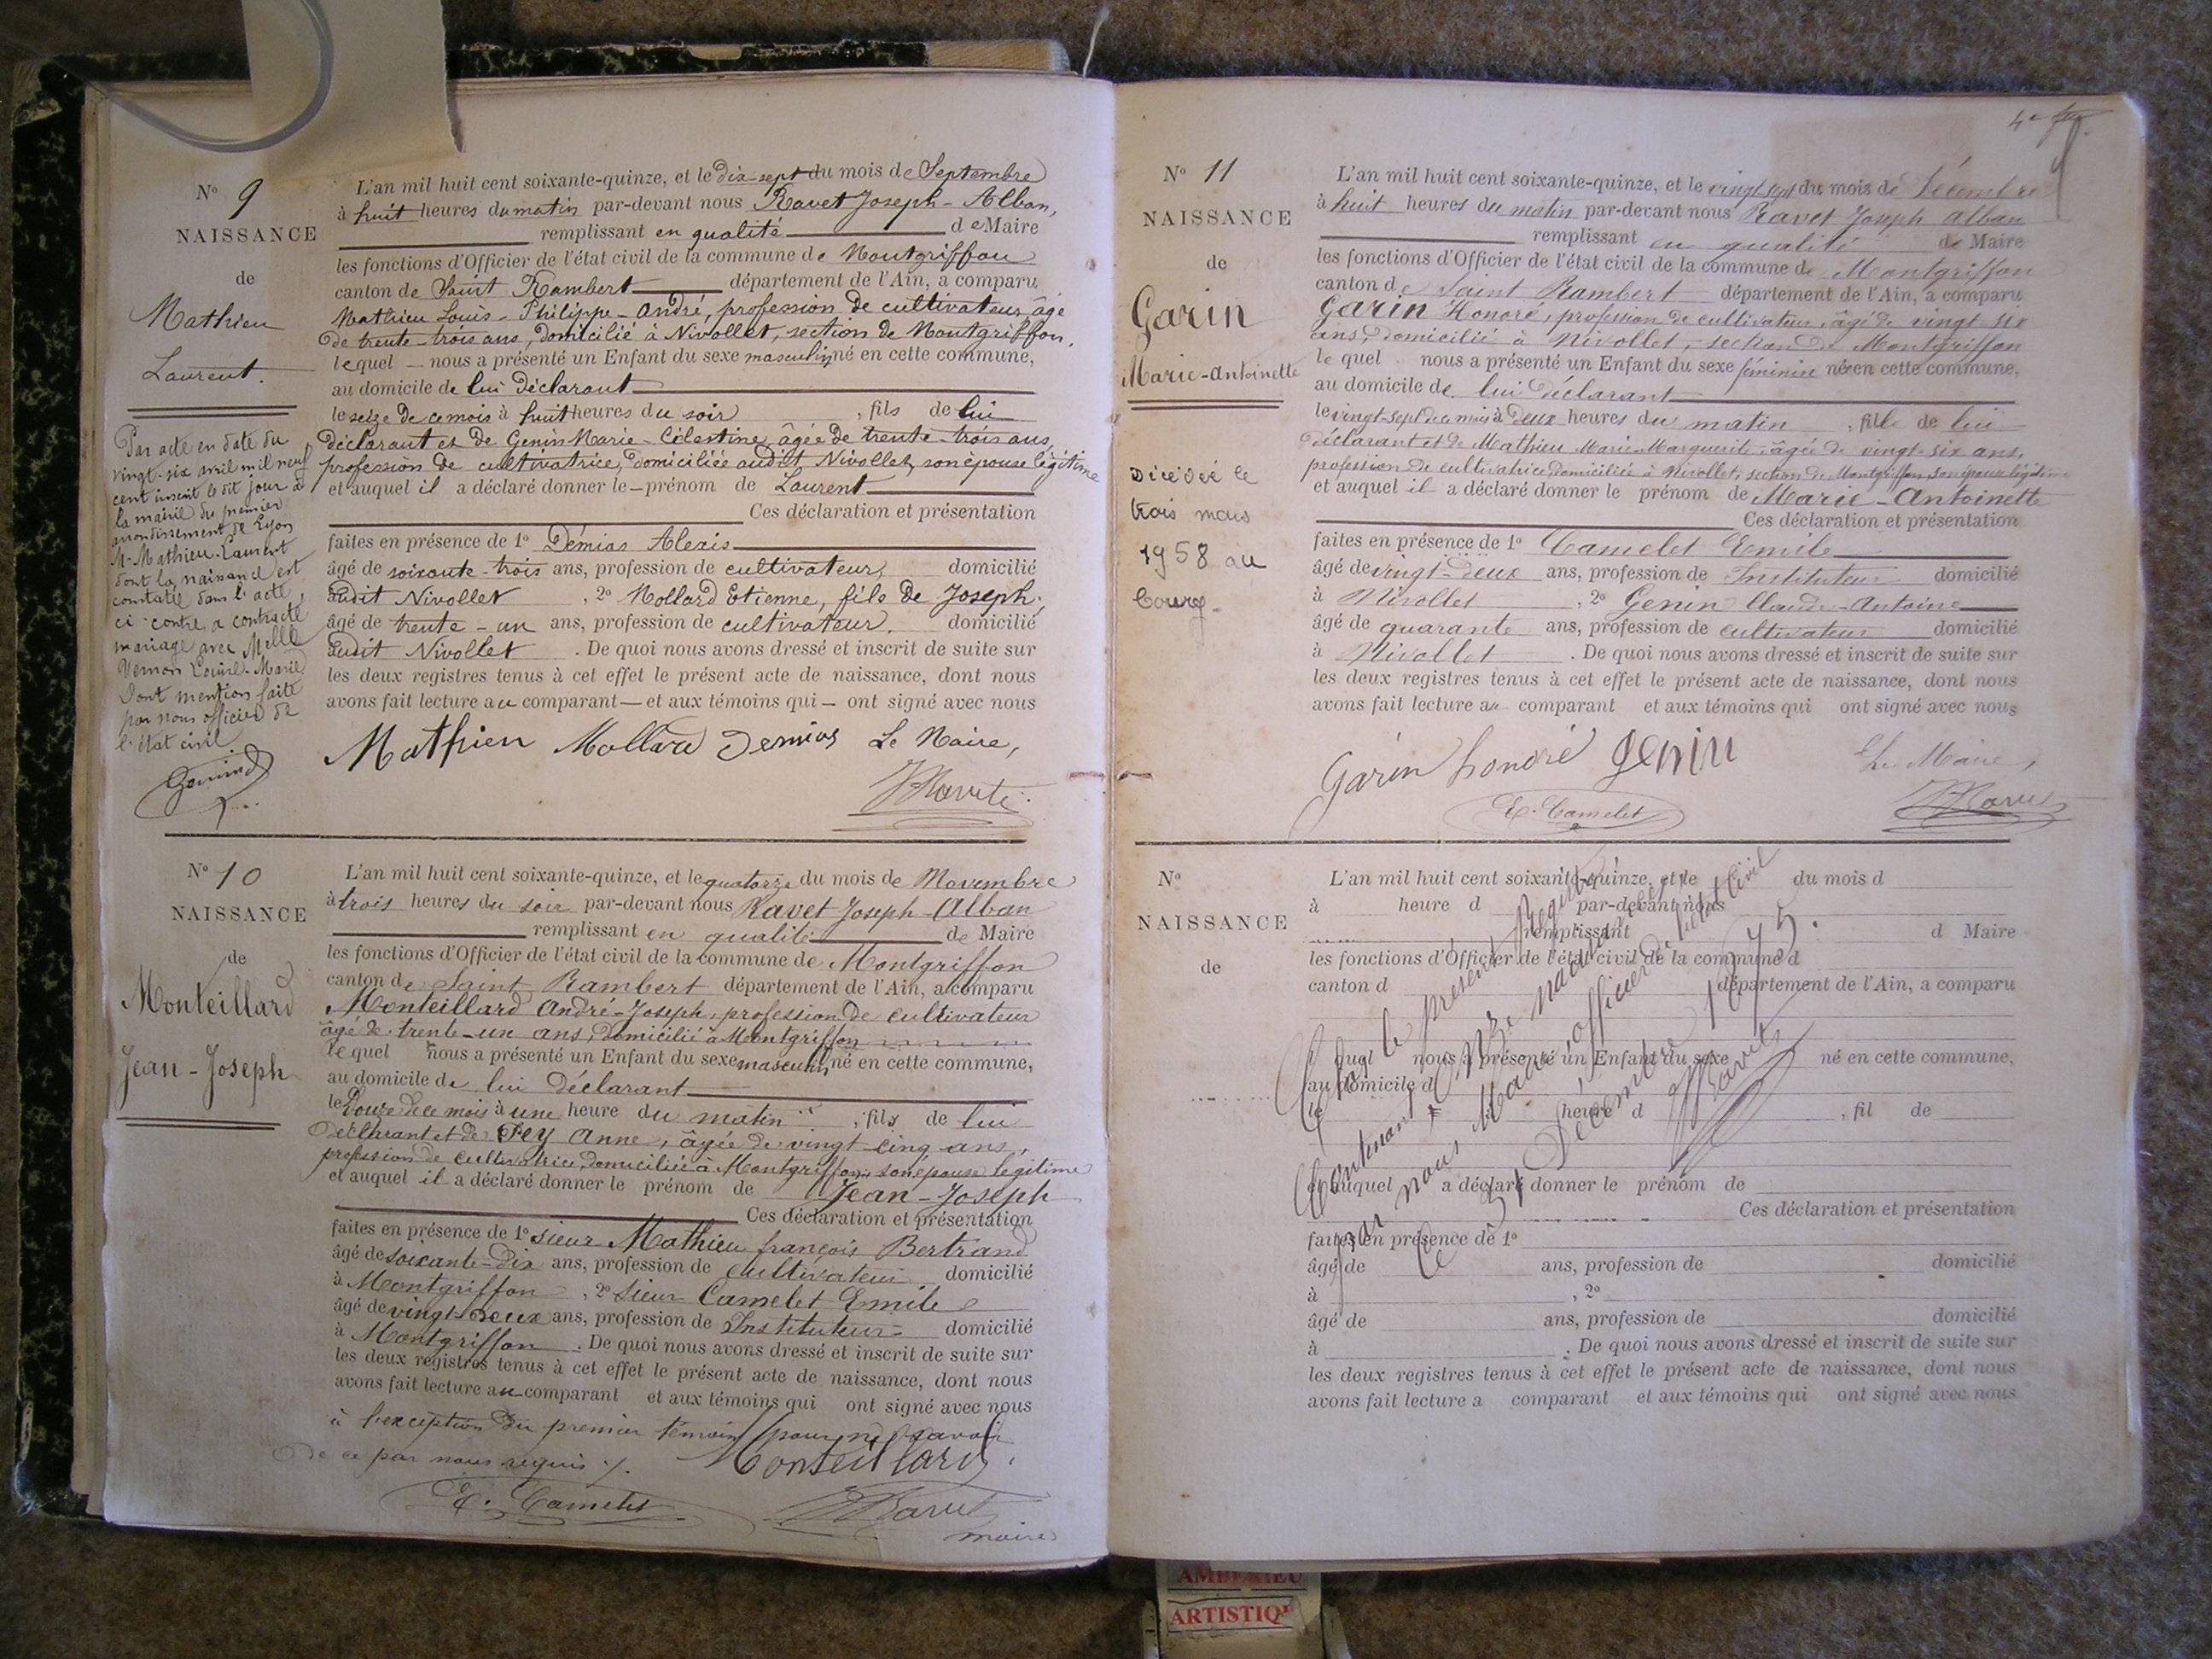 Nº 9
NAISSANCE
de
Mathieu
Laurent.
Par acte en date du
vingt-six avril mil neuf
cent inscrit le dit jour à
la mairie du premier
arrondissement de Lyon
M. Mathieu Laurent
dont la naissance est
constatée dans l'acte
ci-contre, a contracté
mariage avec Melle
Vernon Louise-Marie
Dont mention faite
par nous officier de
l'état civil
L'an mil huit cent soixante-quinze, et le dix-sept du mois de Septembre
à huit heures du matin par-devant nous Ravet Joseph-Alban,
remplissant en qualité de Maire
les fonctions d'Officier de l'état civil de la commune de Montgriffon
canton de Saint Rambert département de l'Ain, a comparu
Mathieu Louis-Philippe-André, profession de cultivateur, âgé
de trente-trois ans, domicilié à Nivollet, section de Montgriffon,
lequel nous a présenté un Enfant du sexe masculin, né en cette commune,
au domicile de lui déclarant
le seize de ce mois à huit heures du soir, fils de lui
déclarant et de Genin Marie-Célestine, âgée de trente-trois ans,
profession de cultivatrice, domiciliée audit Nivollet, son épouse légitime
et auquel il a déclaré donner le prénom de Laurent
Ces déclaration et présentation
faites en présence de 1º Démias Alexis
âgé de soixante-trois ans, profession de cultivateur, domicilié
audit Nivollet, 2º Mollard Etienne, fils de Joseph,
âgé de trente-un ans, profession de cultivateur, domicilié
audit Nivollet. De quoi nous avons dressé et inscrit de suite sur
les deux registres tenus à cet effet le présent acte de naissance, dont nous
avons fait lecture au comparant et aux témoins qui ont signé avec nous
Mathieu Mollard Demias Le Maire,
JRavet
Nº 10
NAISSANCE
de
Monteillard
Jean-Joseph
L'an mil huit cent soixante-quinze, et le quatorze du mois de Novembre
à trois heures du soir par-devant nous Ravet Joseph Alban
remplissant en qualité de Maire
les fonctions d'Officier de l'état civil de la commune de Montgriffon
canton de Saint Rambert département de l'Ain, a comparu
Monteillard André-Joseph, profession de cultivateur
âgé de trente-un ans, domicilié à Montgriffon
le quel nous a présenté un Enfant du sexe masculin, né en cette commune,
au domicile de lui déclarant
le Douze de ce mois à une heure du matin, fils de lui
déclarant et de Pey Anne, âgée de vingt-cinq ans,
profession de cultivatrice, domiciliée à Montgriffon, son épouse légitime
et auquel il a déclaré donner le prénom de Jean-Joseph
Ces déclaration et présentation
faites en présence de 1º sieur Mathieu françois Bertrand
âgé de soixante-dix ans, profession de cultivateur domicilié
à Montgriffon, 2º sieur Camelet Emile
âgé de vingt-deux ans, profession de Instituteur domicilié
à Montgriffon. De quoi nous avons dressé et inscrit de suite sur
les deux registres tenus à cet effet le présent acte de naissance, dont nous
avons fait lecture au comparant et aux témoins qui ont signé avec nous
à l'exception du premier témoin pour ne savoir
de ce par nous requis ./. Monteillard
E. Camelet JRavet
maire
4e
Nº 11
NAISSANCE
de
Garin
Marie-Antoinette
Décédée le
trois mars
1958 au
Bourg
L'an mil huit cent soixante-quinze, et le vingt-sept du mois de Décembre
à huit heures du matin par-devant nous Ravet Joseph Alban
remplissant en qualité de Maire
les fonctions d'Officier de l'état civil de la commune de Montgriffon
canton de Saint Rambert département de l'Ain, a comparu
Garin Honoré, profession de cultivateur, âgé de vingt-six
ans, domicilié à Nivollet, section de Montgriffon
le quel nous a présenté un Enfant du sexe féminin née en cette commune,
au domicile de lui déclarant
le vingt-sept de ce mois à Deux heures du matin, fille de lui
déclarant et de Mathieu Marie-Marguerite, âgée de vingt-six ans,
profession de cultivatrice domiciliée à Nivollet, section de Montgriffon son épouse légitime
et auquel il a déclaré donner le prénom de Marie-Antoinette
Ces déclaration et présentation
faites en présence de 1º Camelet Emile
âgé de vingt-deux ans, profession de Instituteur domicilié
à Nivollet, 2º Genin Claude-Antoine
âgé de quarante ans, profession de cultivateur domicilié
à Nivollet. De quoi nous avons dressé et inscrit de suite sur
les deux registres tenus à cet effet le présent acte de naissance, dont nous
avons fait lecture au comparant et aux témoins qui ont signé avec nous
Garin honoré Genin Le Maire,
E. Camelet JRavet
Nº
NAISSANCE
de
L'an mil huit cent soixante-quinze, et le du mois d
à heure d par-devant nous
remplissant d Maire
les fonctions d'Officier de l'état civil de la commune d
canton d département de l'Ain, a comparu
l quel nous a présenté un Enfant du sexe né en cette commune,
au domicile d
le à heure d , fil de
et auquel a déclaré donner le prénom de
Ces déclaration et présentation
faites en présence de 1º
âgé de ans, profession de domicilié
à , 2º
âgé de ans, profession de domicilié
à . De quoi nous avons dressé et inscrit de suite sur
les deux registres tenus à cet effet le présent acte de naissance, dont nous
avons fait lecture a comparant et aux témoins qui ont signé avec nous
Clos le présent Registre
Contenant onze naissances
par nous Maire officier de l'état Civil
Le 31 Décembre 1875.
JRavet
AMBERIEU
ARTISTIQ